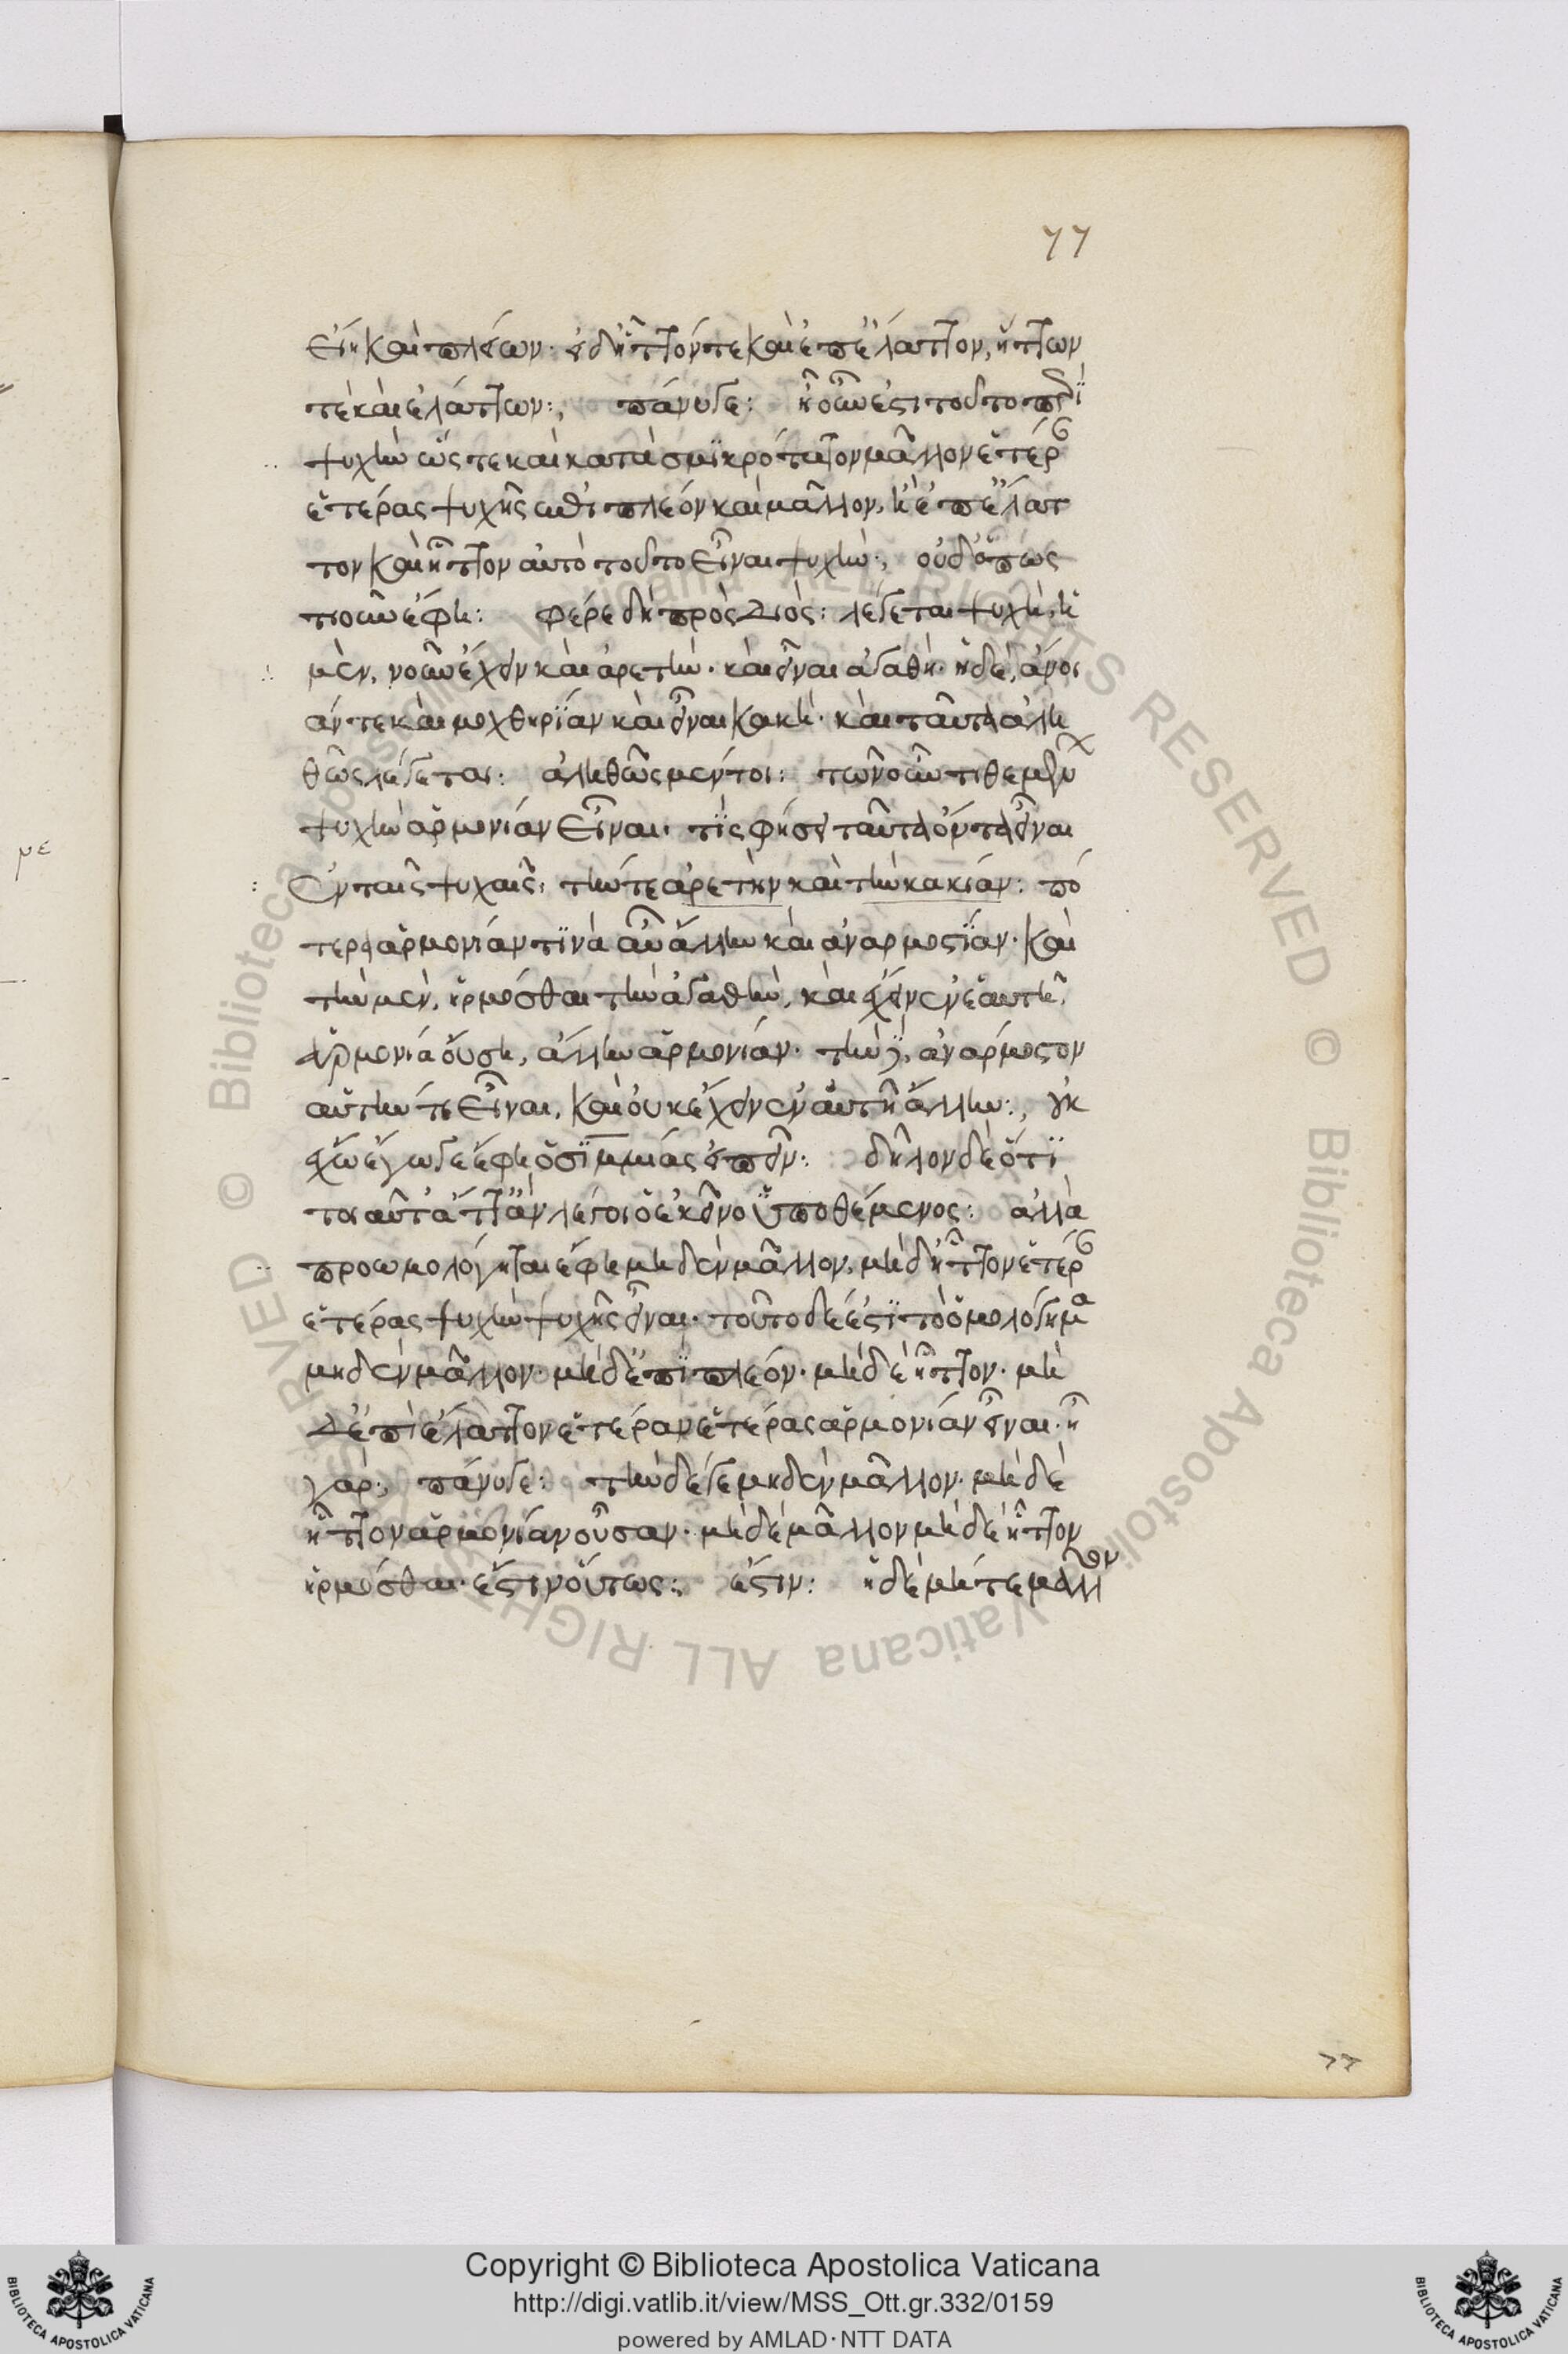 77
εἴη καὶ πλείων· εἰ δ' ἧττόν τε καὶ ἐπ' ἔλαττον, ἥττων
τὲ καὶ ἐλάττων:, πάνυ γε: ἦ οὖν ἔστι τοῦτο περὶ
ψυχὴν ὥς τε καὶ κατὰ σμϊκρότατον μᾶλλον ἑτέραν
ἑτέρας ψυχῆς ἐπὶ πλέον καὶ μᾶλλον, ἢ ἐπ' ἔλατ
τον καὶ ἧττον αὐτὸ τοῦτο εἶναι ψυχὴν:, οὐδ' ὅπως
τιοῦν ἔφη: φέρε δὴ πρὸς Διός: λέγεται ψυχὴ, ἡ
μὲν, νοῦν ἔχειν καὶ ἀρετὴν· καὶ εἶναι ἀγαθὴ· ἡ δὲ, ἄνοι
άν τε καὶ μοχθηρΐαν καὶ εἶναι κακὴ· καὶ ταῦτα ἀλη
θῶς λέγεται: ἀληθῶς μέντοι: τῶν οὖν τιθεμένων
ψυχὴν ἁρμονίαν εἶναι· τῒς φήσει ταῦτα ὄντα εἶναι
ἐν ταῖς ψυχαῖς, τήν τε ἀρετὴν καὶ τὴν κακίαν: πό
τερα ἁρμονίαν τϊνὰ αὖ ἄλλην καὶ ἀναρμοστΐαν· καὶ
τὴν μὲν, ἡρμόσθαι τὴν ἀγαθὴν, καὶ ἔχειν ἐν ἑαυτῆ,
ἁρμονία οὔση, ἄλλην ἁρμονίαν· τὴν δὲ, ἀνάρμοστον
αὐτήν τε εἶναι, καὶ οὐκ ἔχειν ἐν αὑτῆ ἄλλην:, οὐκ
ἔχω ἔγωγε ἔφη ὁ σϊμμίας εἰπεῖν: δῆλον δὲ ὅτϊ
τοιαῦτ' ἄττ' ἂν λέγοι ὁ ἐκεῖνο ὑποθέμενος: ἀλλὰ
προωμολόγηται ἔφη μηδὲν μᾶλλον, μηδ' ἧττον ἑτέραν
ἑτέρας ψυχὴν ψυχῆς εἶναι· τοῦτο δὲ ἔστϊ τὸ ὁμολόγημα
μηδὲν μᾶλλον· μηδ' ἐπϊ πλέον· μηδὲ ἧττον· μη
δ' ἐπὶ ἔλαττον ἑτέραν ἑτέρας ἁρμονίαν εἶναι· ἦ
γάρ:, πάνυ γε: τὴν δέ γε μηδὲν μᾶλλον· μηδὲ
ἧττον ἁρμονίαν οὖσαν· μηδὲ μᾶλλον μηδὲ ἧττον
ἡρμόσθαι· ἔστιν οὕτως:, ἔστιν: ἡ δὲ μήτε μᾶλλον
με
77
Copyright © Biblioteca Apostolica Vaticana
http://digi.vatlib.it/view/MSS_Ott.gr.332/0159
powered by AMLAD·NTT DATA